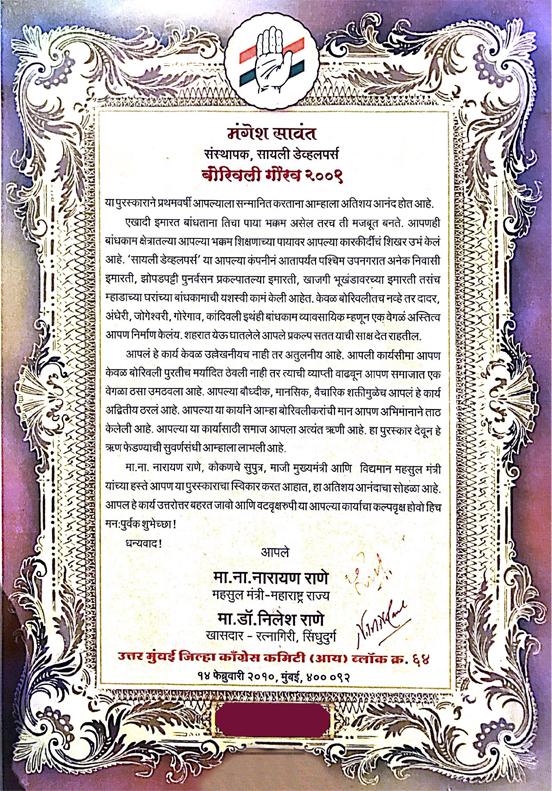 मंगेश सावंत
संस्थापक, सायली डेव्हलपर्स
बोरिवली गौरव २००९
या पुरस्काराने प्रथमवर्षी आपल्याला सन्मानित करताना आम्हाला अतिशय आनंद होत आहे.
एखादी इमारत बांधताना तिचा पाया भक्कम असेल तरच ती मजबूत बनते. आपणही
बांधकाम क्षेत्रातल्या आपल्या भक्कम शिक्षणाच्या पायावर आपल्या कारकीर्दीचं शिखर उभं केलं
आहे. ‘सायली डेव्हलपर्स’ या आपल्या कंपनीनं आतापर्यंत पश्चिम उपनगरात अनेक निवासी
इमारती, झोपडपट्टी पुनर्वसन प्रकल्पातल्या इमारती, खाजगी भूखंडावरच्या इमारती तसंच
म्हाडाच्या घरांच्या बांधकामाची यशस्वी कामं केली आहेत. केवळ बोरिवलीतच नव्हे तर दादर,
अंधेरी, जोगेश्वरी, गोरेगाव, कांदिवली इथंही बांधकाम व्यावसायिक म्हणून एक वेगळं अस्तित्व
आपण निर्माण केलंय. शहरात येऊ घातलेले आपले प्रकल्प सतत याची साक्ष देत राहतील.
आपलं हे कार्य केवळ उल्लेखनीयच नाही तर अतुलनीय आहे. आपली कार्यसीमा आपण
केवळ बोरिवली पुरतीच मर्यादित ठेवली नाही तर त्याची व्याप्ती वाढवून आपण समाजात एक
वेगळा ठसा उमठवला आहे. आपल्या बौध्दीक, मानसिक, वैचारिक शक्तीमुळेच आपलं हे कार्य
अद्वितीय ठरलं आहे. आपल्या या कार्याने आम्हा बोरिवलीकरांची मान आपण अभिमानाने ताठ
केलेली आहे. आपल्या या कार्यासाठी समाज आपला अत्यंत ऋणी आहे. हा पुरस्कार देवून हे
ऋण फेडण्याची सुवर्णसंधी आम्हाला लाभली आहे.
मा.ना. नारायण राणे, कोकणचे सुपुत्र, माजी मुख्यमंत्री आणि विद्यमान महसुल मंत्री
यांच्या हस्ते आपण या पुरस्काराचा स्विकार करत आहात, हा अतिशय आनंदाचा सोहळा आहे.
आपल हे कार्य उत्तरोत्तर बहरत जावो आणि वटवृक्षरुपी या आपल्या कार्याचा कल्पवृक्ष होवो हिच
मन:पुर्वक शुभेच्छा !
धन्यवाद !
आपले
मा.ना.नारायण राणे
महसुल मंत्री-महाराष्ट्र राज्य
मा.डॉ.निलेश राणे
खासदार - रत्नागिरी, सिंधुदुर्ग
उत्तर मुंबई जिल्हा काँग्रेस कमिटी (आय) ब्लॉक क्र. ६४
१४ फेब्रुवारी २०१०, मुंबई, ४०० ०९२